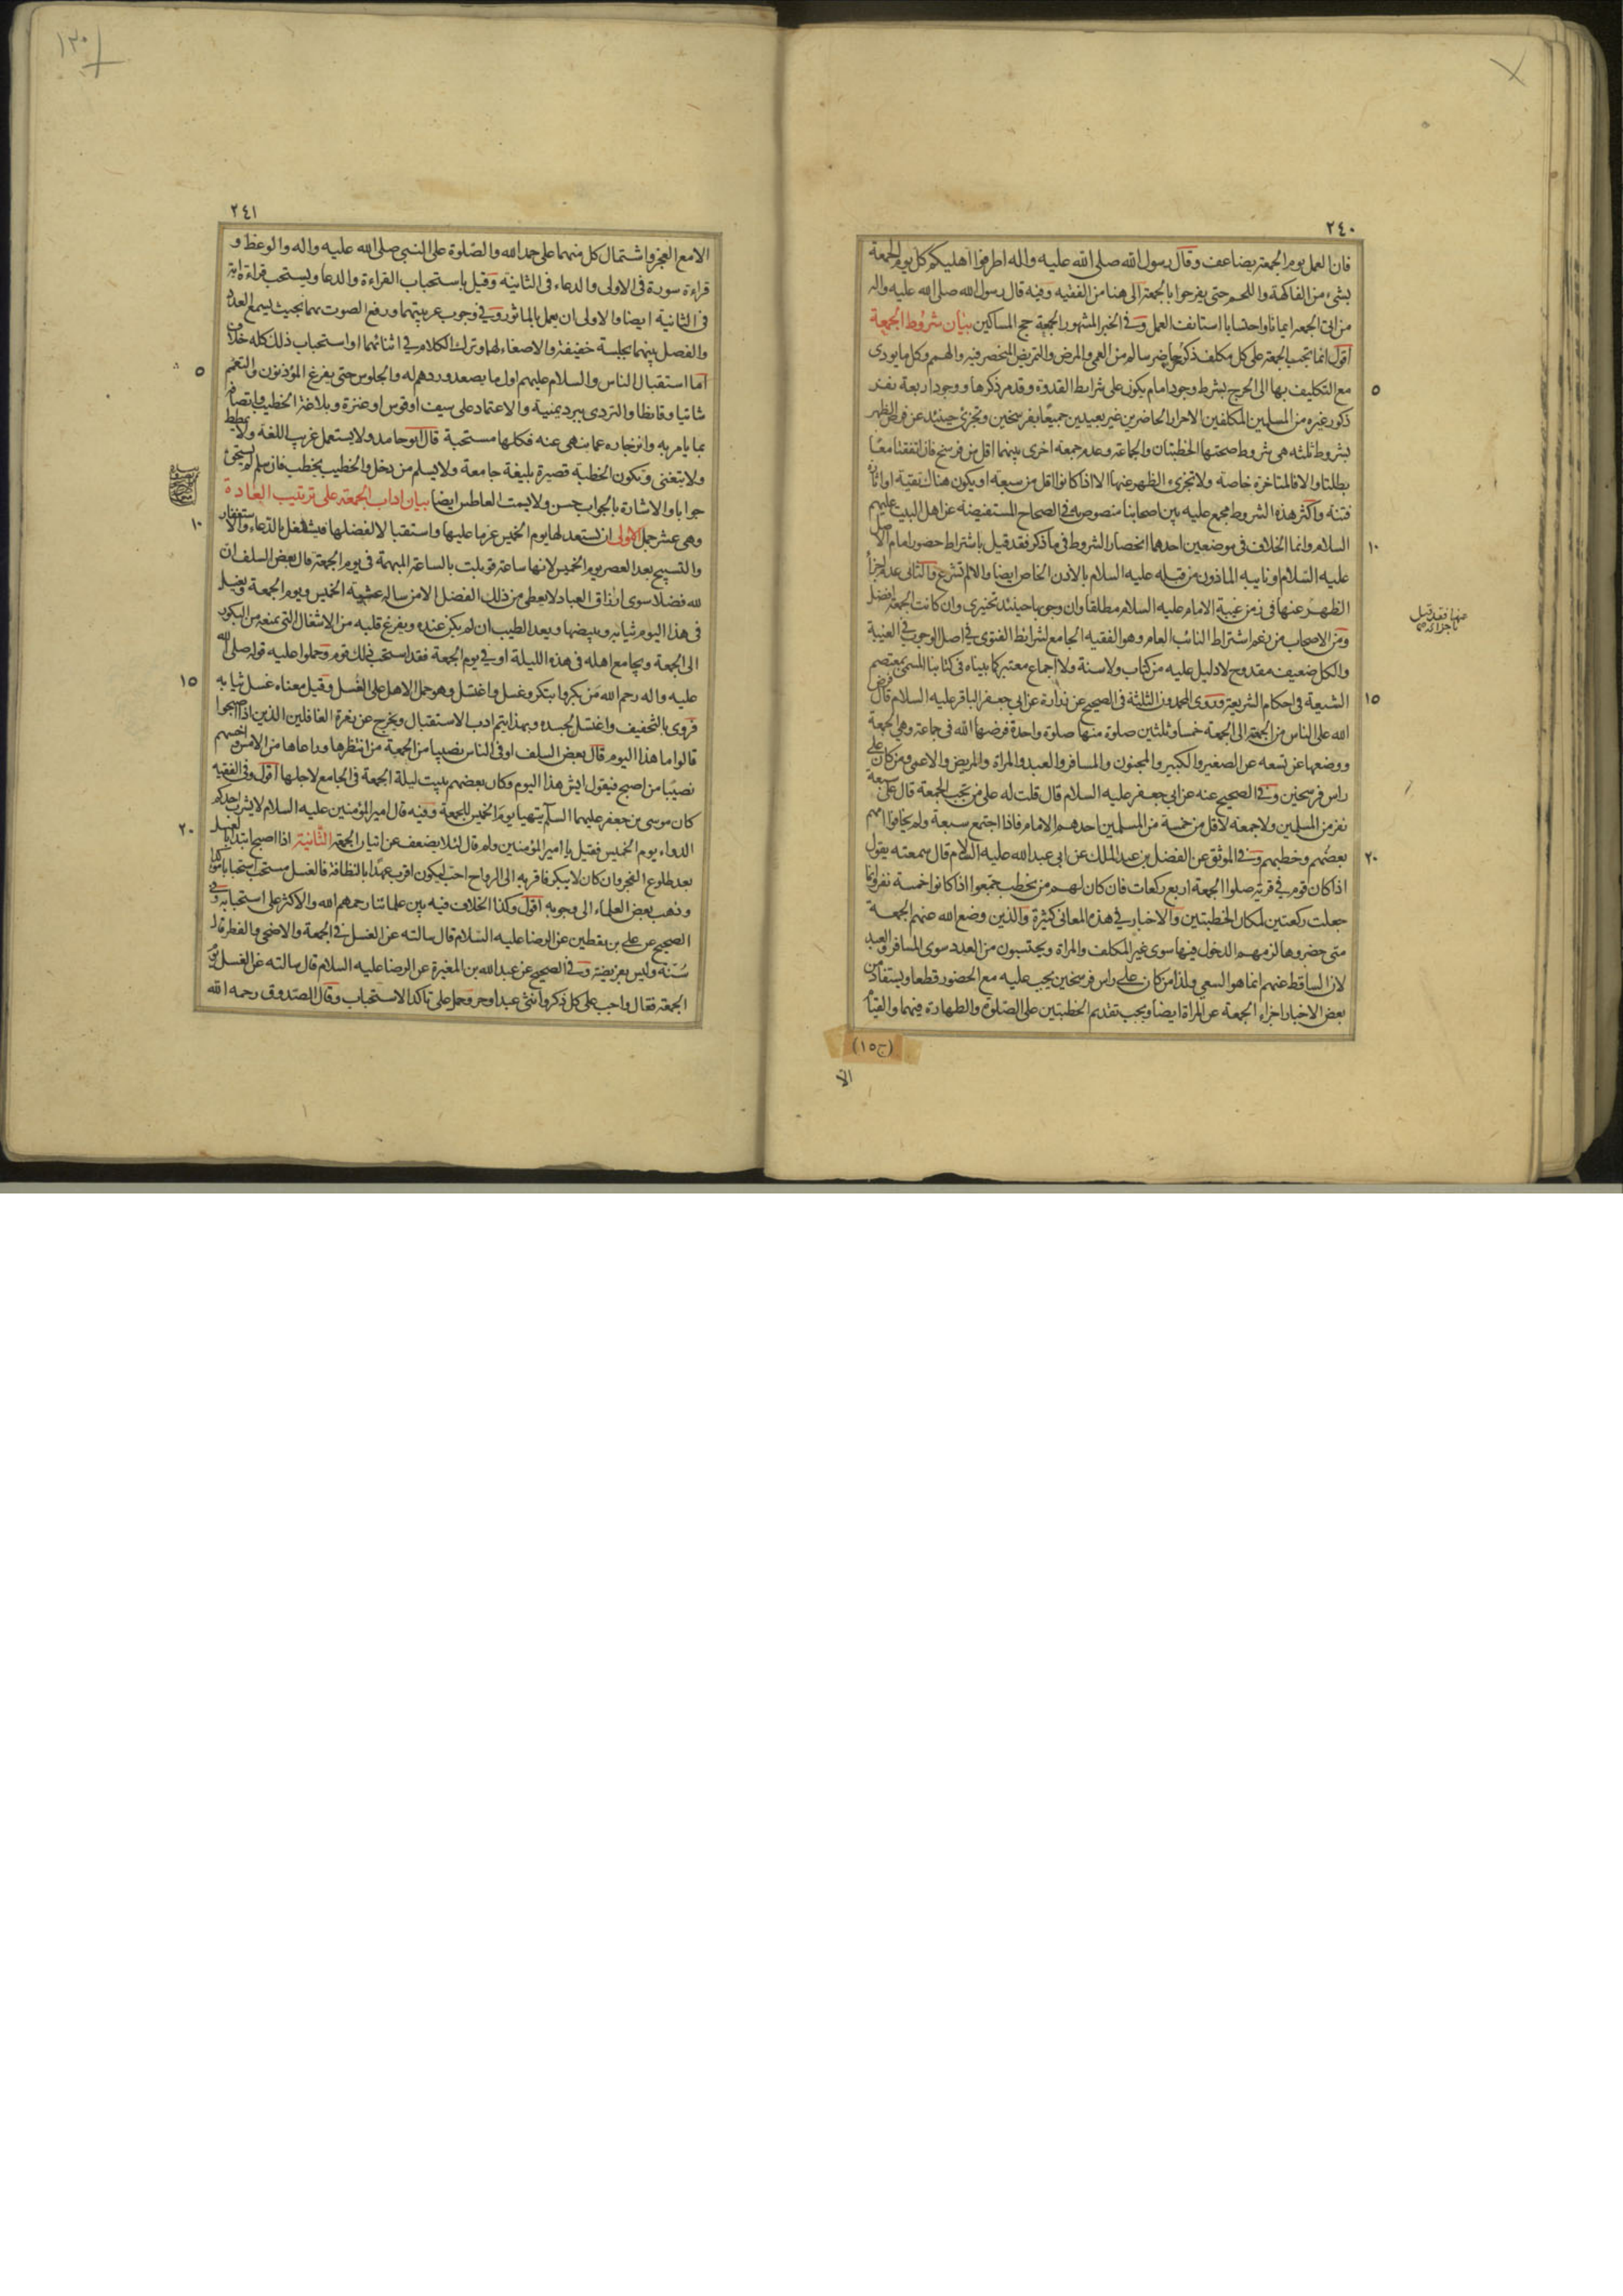 ٢٤٠
فان العمل يوم الجمعة يضاعف وقال رسول الله صلى الله عليه واله اطرفوا اهليكم كل يوم الجمعة
بشئ من الفاكهة واللحم حتى يفرحوا بالجمعة الى هنا من الفقيه وفيه قال رسول الله صلى الله عليه واله
من اتى الجمعة ايمانا واحتسابا استانف العمل وفى الخبر المشهور الجمعة حج المساكين بيان شروط الجمعة
اقول انما تجب الجمعة على كل مكلف ذكر حاضر سالم من العمى والمرض والتمريض المنحصر فيه والهم وكل ما يودى
٥
مع التكليف بها الى الحرج بشرط وجود امام يكون على شرايط القدوة وقد مر ذكرها ووجود اربعة نفر
ذكور غيره من المسلمين المكلفين الاحرار الحاضرين غير بعيدين جميعا بفرسخين وتجزى حينئذ عن فرض الظهر
بشروط ثلثه هى شروط صحتها الخطبتان والجماعة وعدم جمعة اخرى بينهما اقل من فرسخ فان اتفقتا معا
بطلتا والا فالمتاخرة خاصة ولا تجزى الظهر عنها الا اذا كانوا اقل من سبعة او يكون هناك تقية او اثارة
فتنة واكثر هذه الشروط مجمع عليه بين اصحابنا منصوص به فى الصحاح المستفيضة عن اهل البيت عليهم
١٠
السلام وانما الخلاف فى موضعين احدهما انحصار الشروط فى ما ذكر فقد قيل باشتراط حضور امام الاصل
عليه السلام او نايبه الماذون من قبله عليه السلام بالاذن الخاص ايضا والا لم تشرع والثانى عدم اجزاء
الظهر عنها فى زمن غيبة الامام عليه السلام مطلقا وان وجوبها حينئذ تخييرى وان كانت الجمعة افضل
ومن الاصحاب من زعم اشتراط النائب العام وهو الفقيه الجامع لشرائط الفتوى فى اصل الوجوب فى الغيبة
والكل ضعيف مقدوح لا دليل عليه من كتاب ولا سنة ولا اجماع معتبر كما بيناه فى كتابنا المسمى بمعتصم
١٥
الشيعة فى احكام الشريعة وروى المحمدون الثلثة فى الصحيح عن زرارة عن ابى جعفر الباقر عليه السلام قال فرض
الله على الناس من الجمعة الى الجمعة خمسا وثلثين صلوة منها صلوة واحدة فرضها الله فى جماعة وهى الجمعة
ووضعها عن تسعه عن الصغير والكبير والمجنون والمسافر والعبد والمراة والمريض والاعمى ومن كان على
راس فرسخين وفى الصحيح عنه عن ابى جعفر عليه السلام قال قلت له على من تجب الجمعة قال على سبعة
نفر من المسلمين ولا جمعة لاقل من خمسة من المسلمين احدهم الامام فاذا اجتمع سبعة ولم يخافوا امهم
٢٠
بعضهم وخطبهم وفى الموثق عن الفضل بن عبد الملك عن ابى عبد الله عليه السلام قال سمعته يقول
اذا كان قوم فى قرية صلوا الجمعة اربع ركعات فان كان لهم من يخطب جمعوا اذا كانوا خمسة نفر وانما
جعلت ركعتين لمكان الخطبتين والاخبار فى هذه المعانى كثيرة والذين وضع الله عنهم الجمعة
متى حضروها لزمهم الدخول فيها سوى غير المكلف والمراة ويحتسبون من العدد سوى المسافر والعبد
لان الساقط عنهم انما هو السعى ولذا من كان على راس فرسخين يجب عليه مع الحضور قطعا ويستفاد من
بعض الاخبار اجزاء الجمعة عن المراة ايضا ويجب تقديم الخطبتين على الصلوة والطهارة فيهما والقيام
(ج١٥)
الا
عنها فقد قيل
باجزائه
٢٤١
الا مع العجز واشتمال كل منهما على حمد الله والصلوة على النبى صلى الله عليه واله والوعظ و
قراءة سورة فى الاولى والدعاء فى الثانية وقيل باستحباب القراءة والدعا ويستحب قراءة اية
فى الثانية ايضا والاولى ان يعمل بالماثور وفى وجوب عربيتهما ورفع الصوت بهما بحيث يسمع العدد
والفصل بينهما بجلسة خفيفة والاصغاء لهما وترك الكلام فى اثنائهما او استحباب ذلك كله خلاف
٥
اما استقبال الناس والسلام عليهم اول ما يصعد وردهم له والجلوس حتى يفرغ المؤذنون والتعمم
شاتيا وقايظا والتردى ببرد يمنية والاعتماد على سيف او قوس او عنزة وبلاغة الخطيب واتصافه
بما يامر به وانزجاره عما ينهى عنه فكلها مستحبة قال ابو حامد ولا يستعمل غريب اللغة ولا يمطط
ولا يتغنى وتكون الخطبة قصيرة بليغة جامعة ولا يسلم من دخل والخطيب يخطب فان سلم لم يستحق
جوابا والاشارة بالجواب حسن ولا يسمت العاطس ايضا بيان اداب الجمعة على ترتيب العادة
١٠
وهى عشر جمل الاولى ان يستعد لها يوم الخميس عزما عليها واستقبالا لفضلها فيشتغل بالدعاء والاستغفار
والتسبيح بعد العصر يوم الخميس لانها ساعة قوبلت بالساعة المبهمة فى يوم الجمعة قال بعض السلف ان
لله فضلا سوى ارزاق العباد لا يعطى من ذلك الفضل الا من ساله عشية الخميس ويوم الجمعة ويغسل
فى هذا اليوم ثيابه ويبيضها ويعد الطيب ان لم يكن عنده ويفرغ قلبه من الاشغال التى تمنعه من البكور
الى الجمعة ويجامع اهله فى هذه الليلة او فى يوم الجمعة فقد استحب ذلك قوم وحملوا عليه قوله صلى الله
١٥
عليه واله رحم الله من بكر وابتكر وغسل واغتسل وهو حمل الاهل على الغسل وقيل معناه غسل ثيابه
فروى بالتخفيف واغتسل لجسده وبهذا يتم ادب الاستقبال ويخرج عن زمرة الغافلين الذين اذا اصبحوا
قالوا ما هذا اليوم قال بعض السلف اوفى الناس نصيبا من الجمعة من انتظرها وراعاها من الامس واخسهم
نصيبا من اصبح فيقول ايش هذا اليوم وكان بعضهم يبيت ليلة الجمعة فى الجامع لاجلها اقول وفى الفقيه
كان موسى بن جعفر عليهما السلام يتهيا يوم الخميس للجمعة وفيه قال امير المؤمنين عليه السلام لا يشرب احدكم
٢٠
الدواء يوم الخميس فقيل يا امير المؤمنين ولم قال لئلا يضعف عن اتيان الجمعة الثانية اذا اصبح ابتدا بالغسل
بعد طلوع الفجر وان كان لا يبكر فاقربه الى الرواح احب ليكون اقرب عهدا بالنظافة فالغسل مستحب استحبابا مؤكدا
وذهب بعض العلماء الى وجوبه اقول وكذا الخلاف فيه بين علمائنا رحمهم الله والاكثر على استحبابه وفى
الصحيح عن على بن يقطين عن الرضا عليه السلام قال سالته عن الغسل فى الجمعة والاضحى والفطر قال
سنة وليس بفريضة وفى الصحيح عن عبد الله بن المغيرة عن الرضا عليه السلام قال سالته عن الغسل يوم
الجمعة فقال واجب على كل ذكر وانثى عبد او حر وحمل على تاكد الاستحباب وقال الصدوق رحمه الله